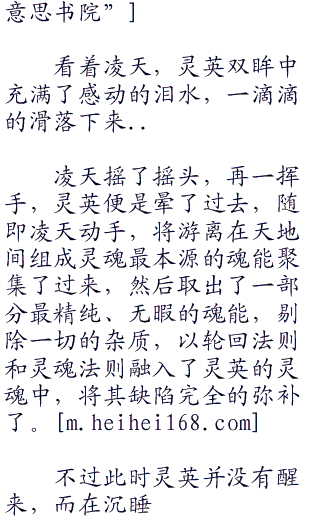 意思书院”]
看着凌天，灵英双眸中
充满了感动的泪水，一滴滴
的滑落下来..
凌天摇了摇头，再一挥
手，灵英便是晕了过去，随
即凌天动手，将游离在天地
间组成灵魂最本源的魂能聚
集了过来，然后取出了一部
分最精纯、无暇的魂能，剔
除一切的杂质，以轮回法则
和灵魂法则融入了灵英的灵
魂中，将其缺陷完全的弥补
了。[m.heihei168.com]
不过此时灵英并没有醒
来，而在沉睡